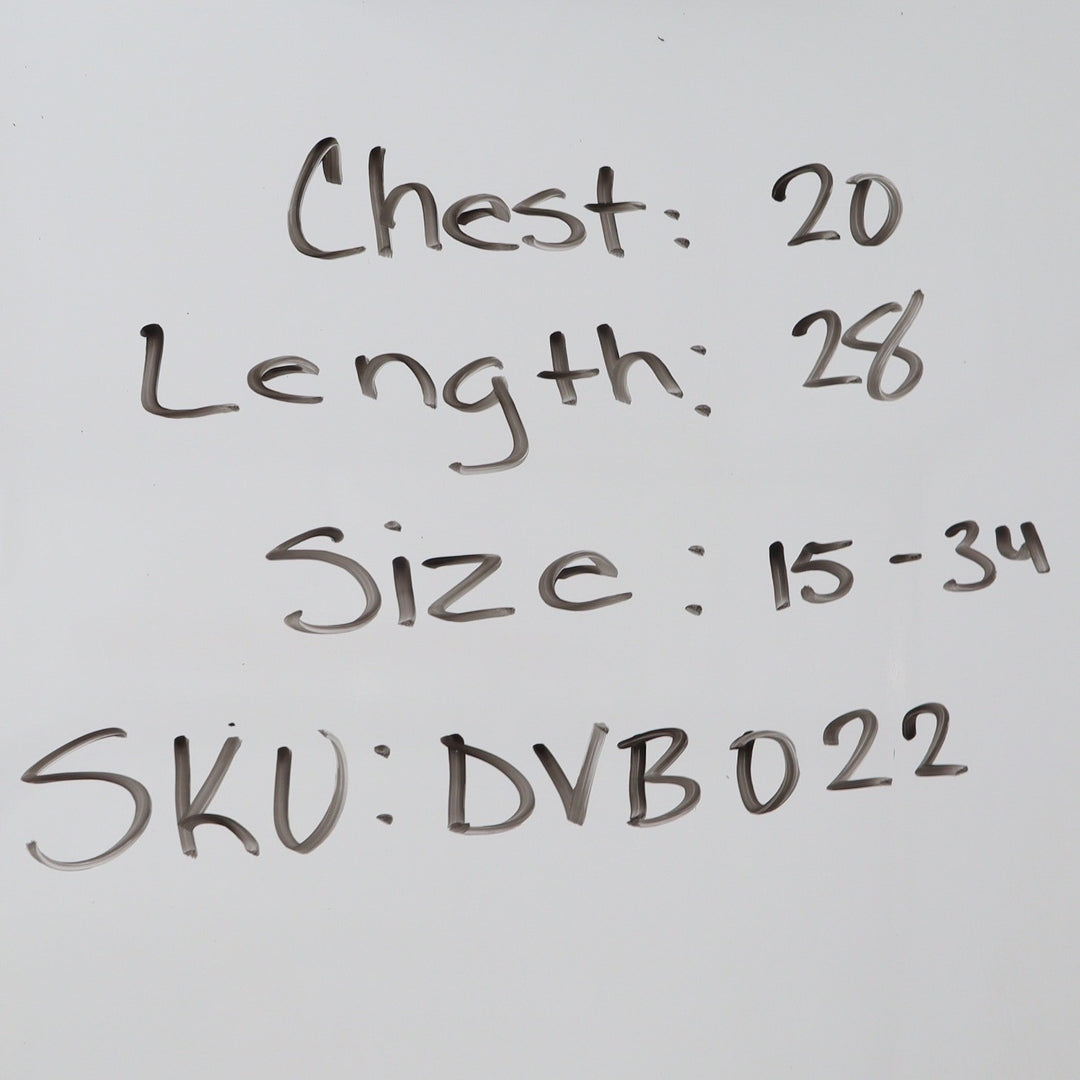 Chest: 20
Length: 28
Size: 15-34
SKU: DVB022